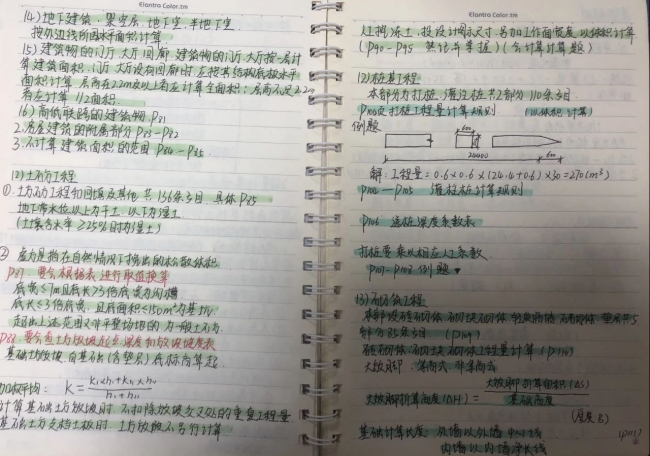 Elantra Color.tm
(14) 地下建筑、架空层、地下室、半地下室
按外边线所围水平面积计算
15) 建筑物的门厅大厅回廊 建筑物的门厅大厅按一层计
算建筑面积，门厅大厅设有回廊时，应按其结构底板水平
面积计算，层高在2.2m及以上者应计算全面积；层高不足2.2m
者应计算1/2面积。
16) 高低联跨的建筑物 P81
2. 房屋建筑的附属部分 P83-P82
3. 不计算建筑面积的范围 P84-P85
(2) 土石方工程
① 土石方工程和回填及其他 共136条子目 具体P85
地下常水位以上为干土，以下为湿土
(土壤含水率≥25%时为湿土)
② 应力是指在自然情况下挖出的松散体积
P87. 要会根据表进行取值换算
底宽≤7m且底长>3倍底宽为沟槽
底长≤3倍底宽，且底面积≤150m²为基坑
超出上述范围又非平整场地的为一般土石方
P88 要会查土方放坡起点深度和放坡坡度表
基础土方放坡，自基础(含垫层)底标高算起
加权平均： K = K₁×h₁+K₂×h₂ / h₁+h₂
计算基础土方放坡时，不扣除放坡交叉处的重复工程量
基础土方支挡土板时，土方放坡不另行计算
Elantra Color.tm
人工挖冻土，按设计图示尺寸，另加工作面宽度，以体积计算
(P90-P95 熟记与掌握) (会计算计算题)
(2) 桩基工程
本部分为打桩、灌注桩共2部分 110条子目
打桩工程量计算规则 (以体积计算)
例题
解：工程量=0.6×0.6×(24.4+0.6)×30=270(m³)
P102-P105 灌注桩计算规则
P106 送桩深度系数表
打桩要乘以相应人工系数
P107-P108 例题
(3) 砌筑工程
(P109)
砖砌砌体、砌块砌体工程量计算 (P110)
大放脚：等高式 非等高式
大放脚折算高度(ΔH) = 大放脚折算面积(ΔS) / 基础厚度
基础计算长度：外墙以外墙中心线
内墙以内墙净长线